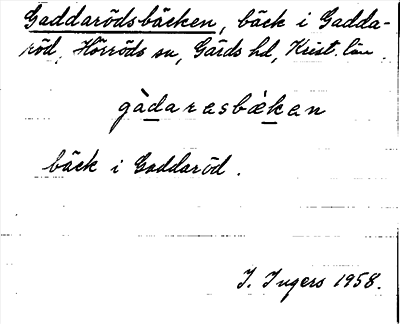 Gaddarödsbäcken, bäck i Gadda-
röd, Hörröds sn, Gärds hd, Krist. län.
gàdaresbæ̀ken
bäck i Gaddaröd.
I. Ingers 1958.